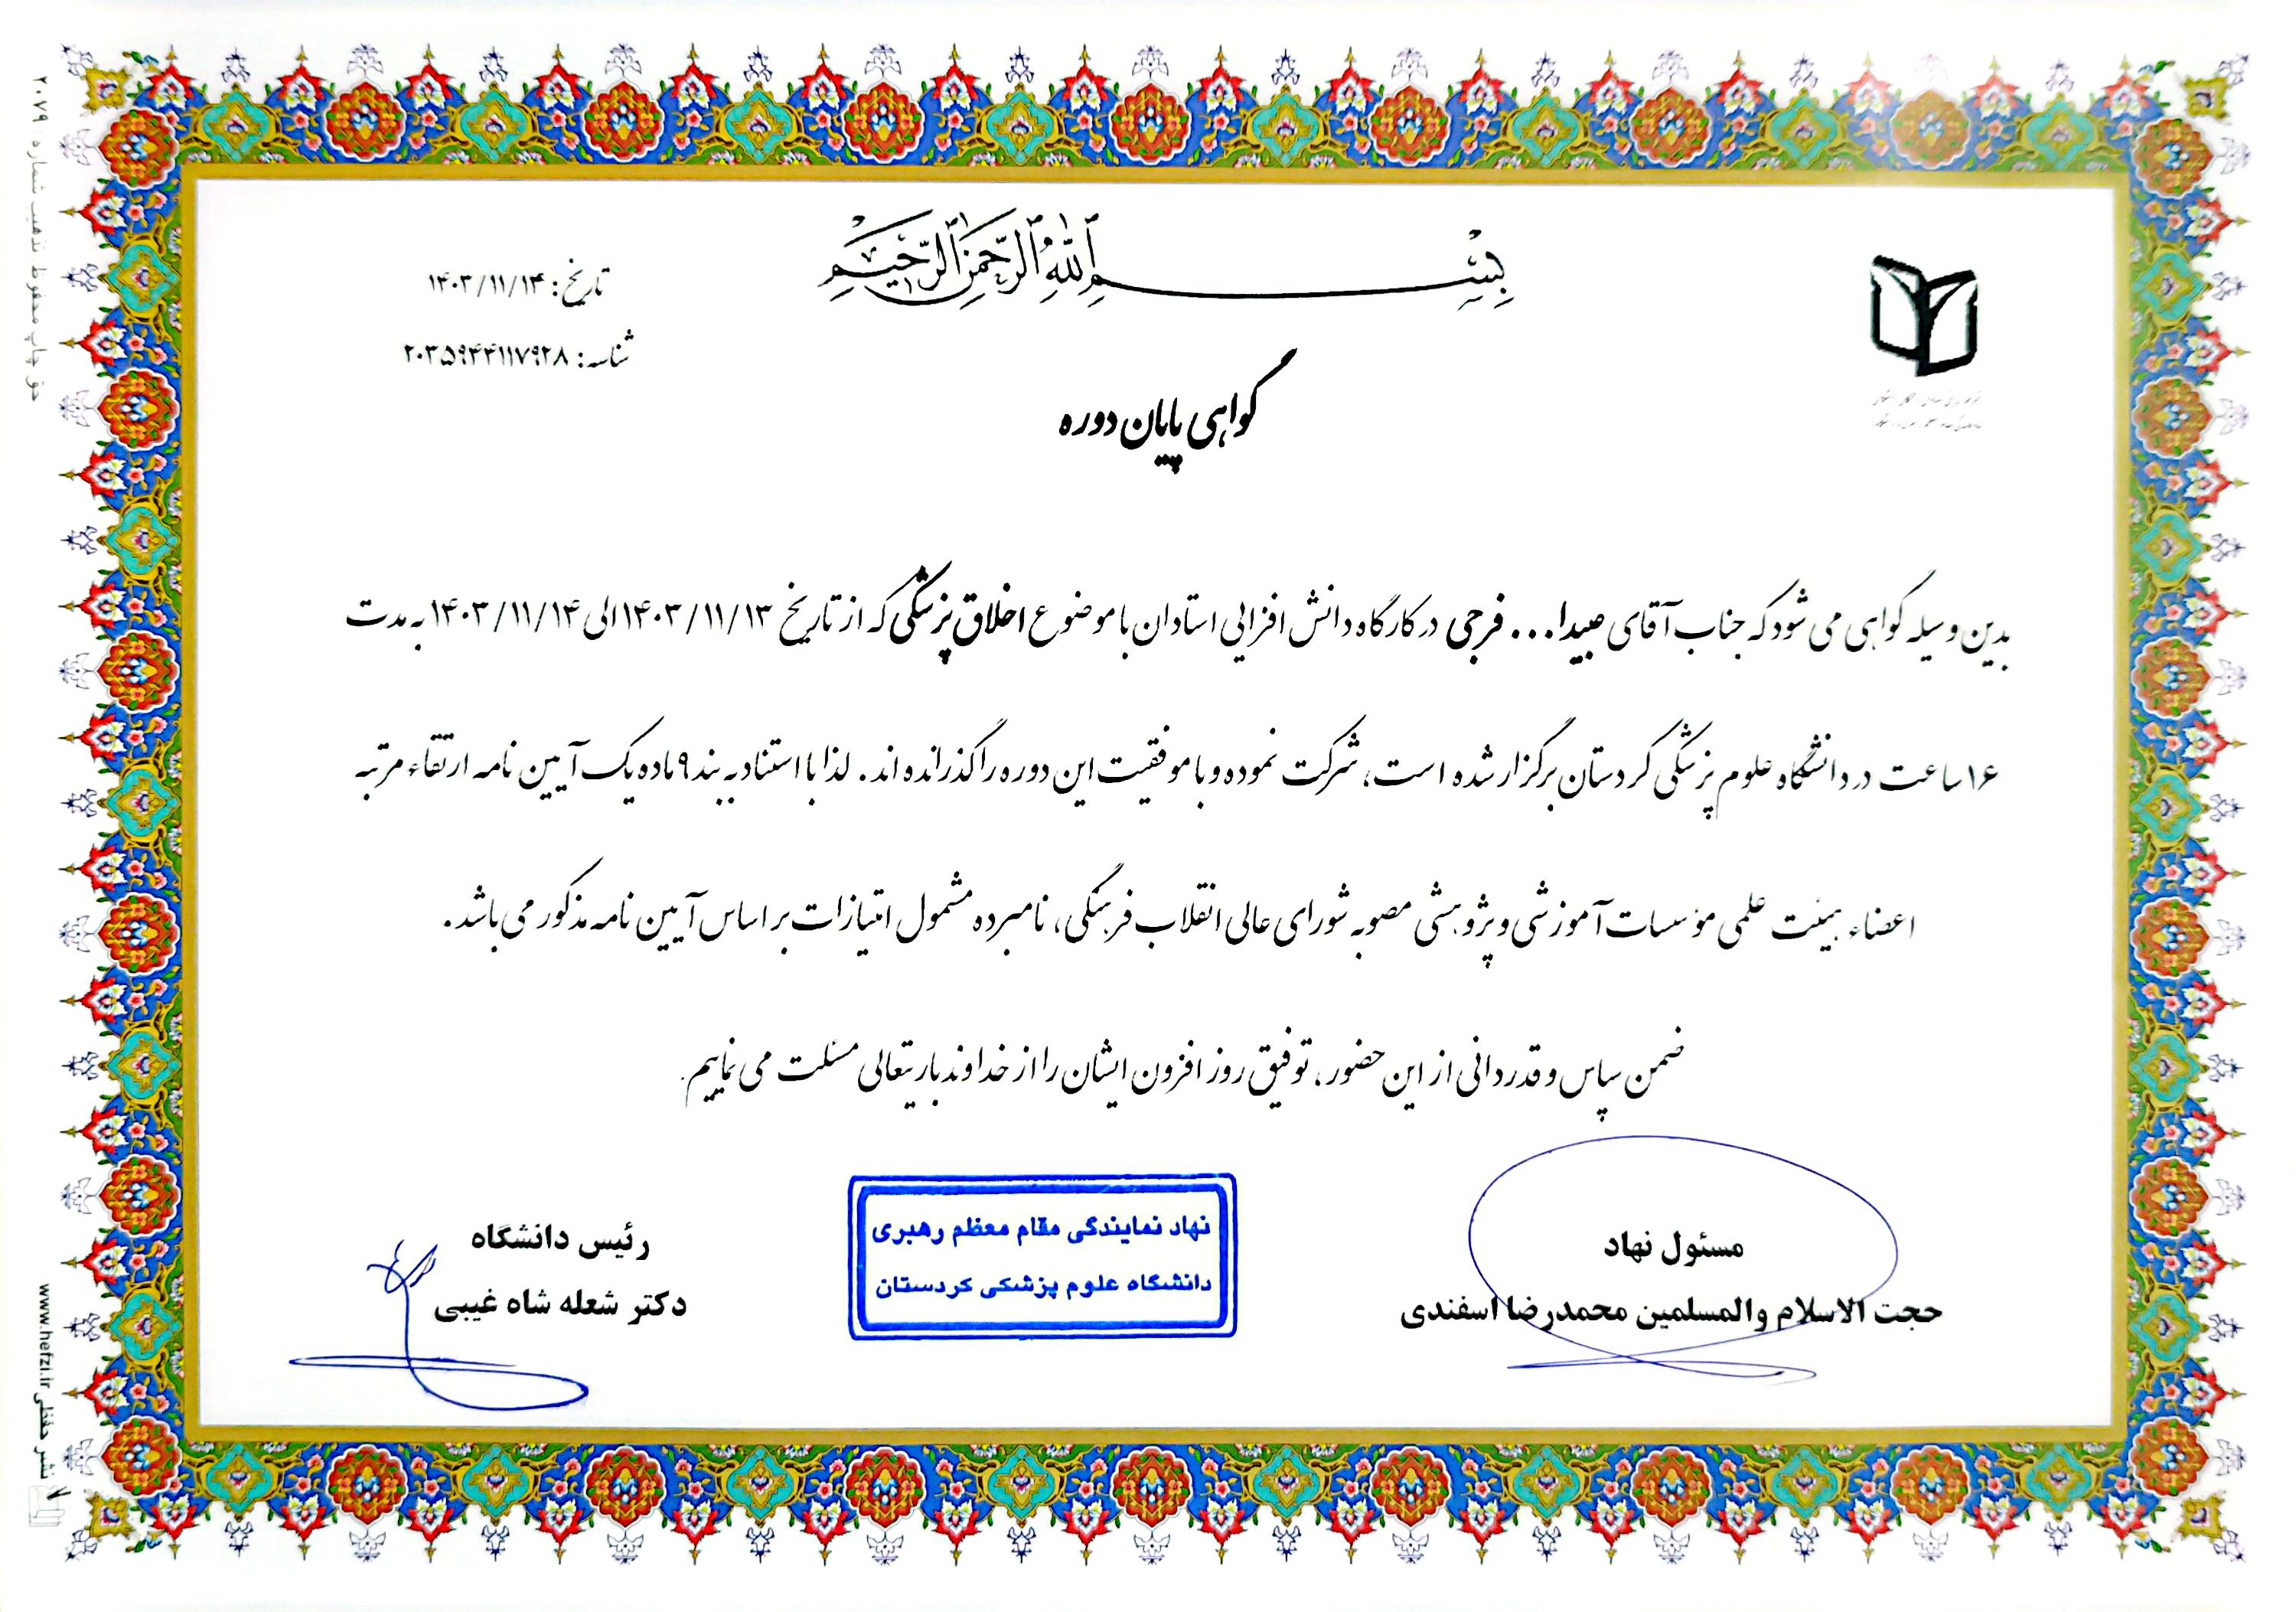 بسم الله الرحمن الرحیم
تاریخ: ۱۴۰۳/۱۱/۱۴
شناسه: ۲۰۳۵۹۴۴۱۱۷۹۲۸
گواهی پایان دوره
بدین وسیله گواهی می شود که جناب آقای صیدا... فرجی در کارگاه دانش افزایی استادان با موضوع اخلاق پزشکی که از تاریخ ۱۴۰۳/۱۱/۱۳ الی ۱۴۰۳/۱۱/۱۴ به مدت
۱۶ ساعت در دانشگاه علوم پزشکی کردستان برگزار شده است، شرکت نموده و با موفقیت این دوره را گذرانده اند. لذا با استناد به بند ۹ ماده یک آیین نامه ارتقاء مرتبه
اعضاء هیئت علمی مؤسسات آموزشی و پژوهشی مصوبه شورای عالی انقلاب فرهنگی، نامبرده مشمول امتیازات بر اساس آیین نامه مذکور می باشد.
ضمن سپاس و قدردانی از این حضور، توفیق روز افزون ایشان را از خداوند باریتعالی مسئلت می نماییم.
مسئول نهاد
حجت الاسلام والمسلمین محمدرضا اسفندی
نهاد نمایندگی مقام معظم رهبری
دانشگاه علوم پزشکی کردستان
رئیس دانشگاه
دکتر شعله شاه غیبی
حق چاپ محفوظ تذهیب شماره: ۲۰۷۹
نشر حفظی www.hefzi.ir